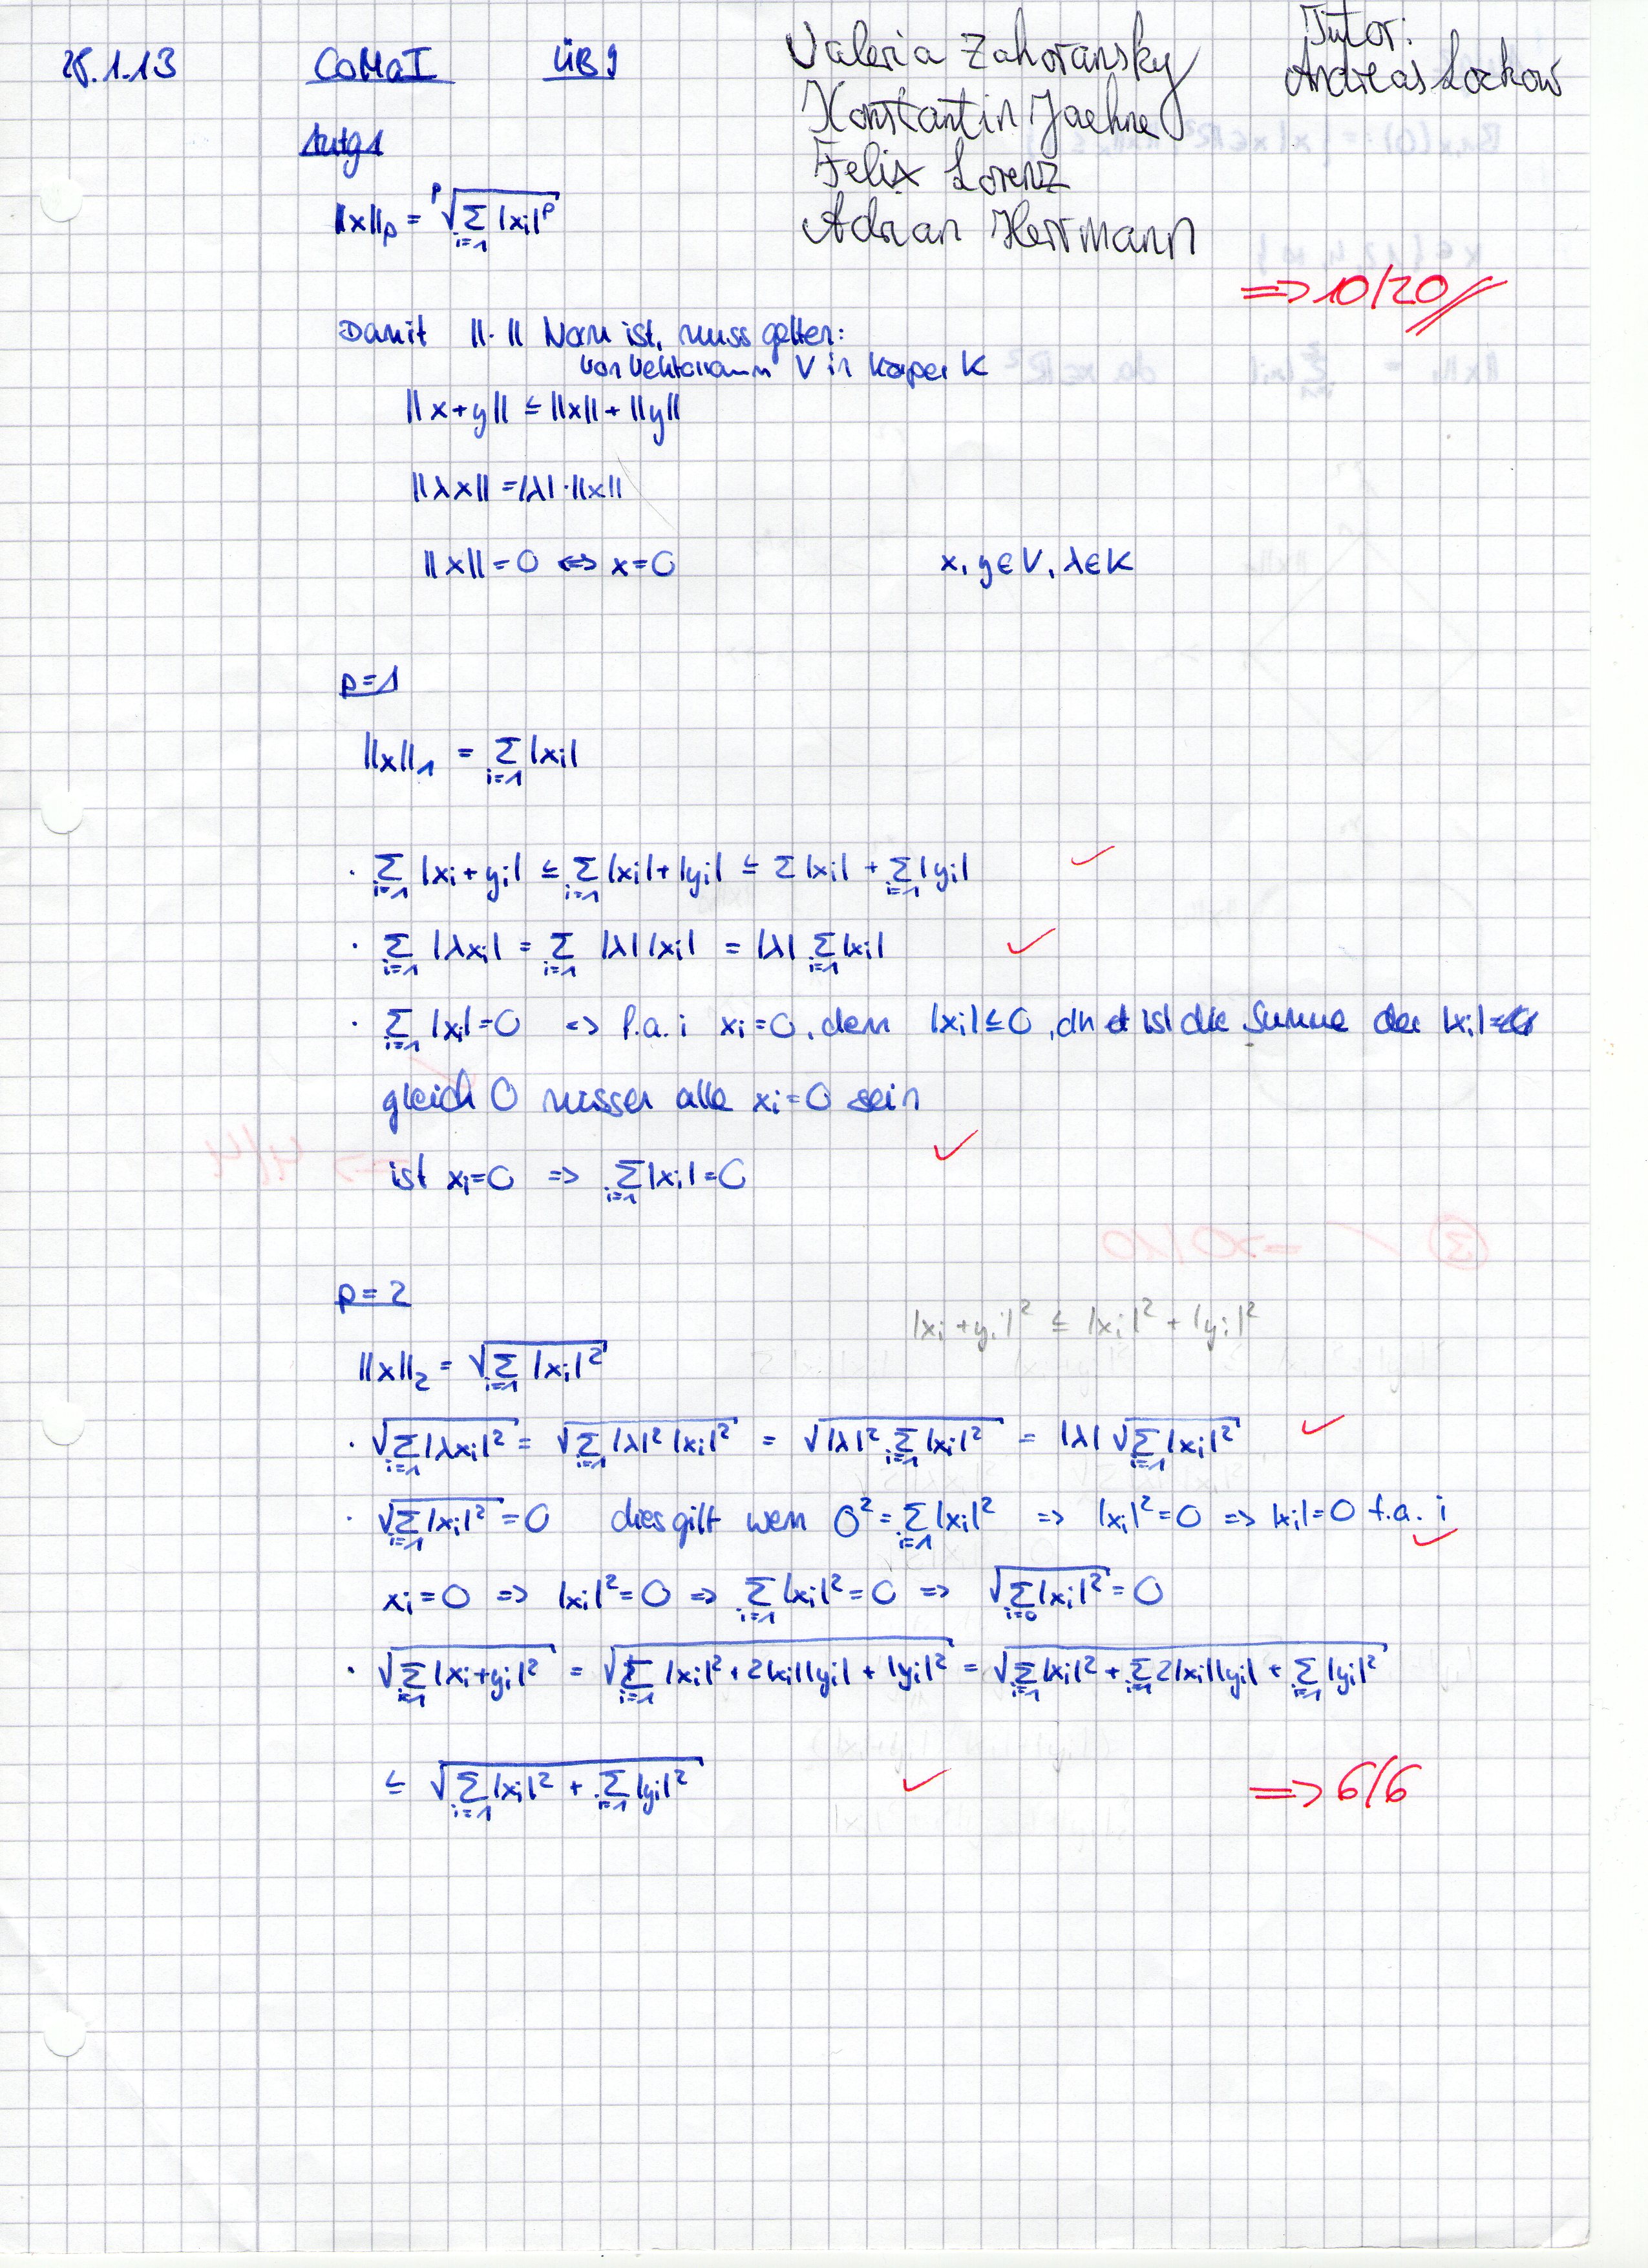 28.1.13 CoMaI ÜB 9
Valeria Zahoransky
Konstantin Jaehne
Felix Lorenz
Adrian Herrmann
Tutor:
Andreas Lockow
Aufg 1
||x||_p = ᵖ√(Σ_{i=1} |x_i|^p)
=> 10/20
Damit ||·|| Norm ist, muss gelten:
von Vektorraum V in Körper K
||x+y|| ≤ ||x|| + ||y||
||λx|| = |λ|·||x||
||x|| = 0 <=> x = 0 x, y ∈ V, λ ∈ K
p = 1
||x||_1 = Σ_{i=1} |x_i|
· Σ_{i=1} |x_i + y_i| ≤ Σ_{i=1} |x_i| + |y_i| ≤ Σ |x_i| + Σ_{i=1} |y_i| ✓
· Σ_{i=1} |λx_i| = Σ_{i=1} |λ| |x_i| = |λ| Σ_{i=1} |x_i| ✓
· Σ_{i=1} |x_i| = 0 <=> f.a. i x_i = 0, denn |x_i| ≤ 0, ist die Summe der |x_i|
gleich 0 müssen alle x_i = 0 sein
ist x_i = 0 => Σ_{i=1} |x_i| = 0 ✓
p = 2
|x_i + y_i|² ≤ |x_i|² + |y_i|²
||x||_2 = √(Σ_{i=1} |x_i|²)
· √(Σ_{i=1} |λx_i|²) = √(Σ_{i=1} |λ|² |x_i|²) = √(|λ|² Σ_{i=1} |x_i|²) = |λ| √(Σ_{i=1} |x_i|²) ✓
· √(Σ_{i=1} |x_i|²) = 0 dies gilt wenn 0² = Σ_{i=1} |x_i|² => |x_i|² = 0 => |x_i| = 0 f.a. i ✓
x_i = 0 => |x_i|² = 0 => Σ_{i=1} |x_i|² = 0 => √(Σ_{i=0} |x_i|²) = 0
· √(Σ_{i=1} |x_i + y_i|²) = √(Σ_{i=1} |x_i|² + 2|x_i||y_i| + |y_i|²) = √(Σ_{i=1} |x_i|² + Σ_{i=1} 2|x_i||y_i| + Σ_{i=1} |y_i|²)
≤ √(Σ_{i=1} |x_i|² + Σ_{i=1} |y_i|²) ✓ => 6/6